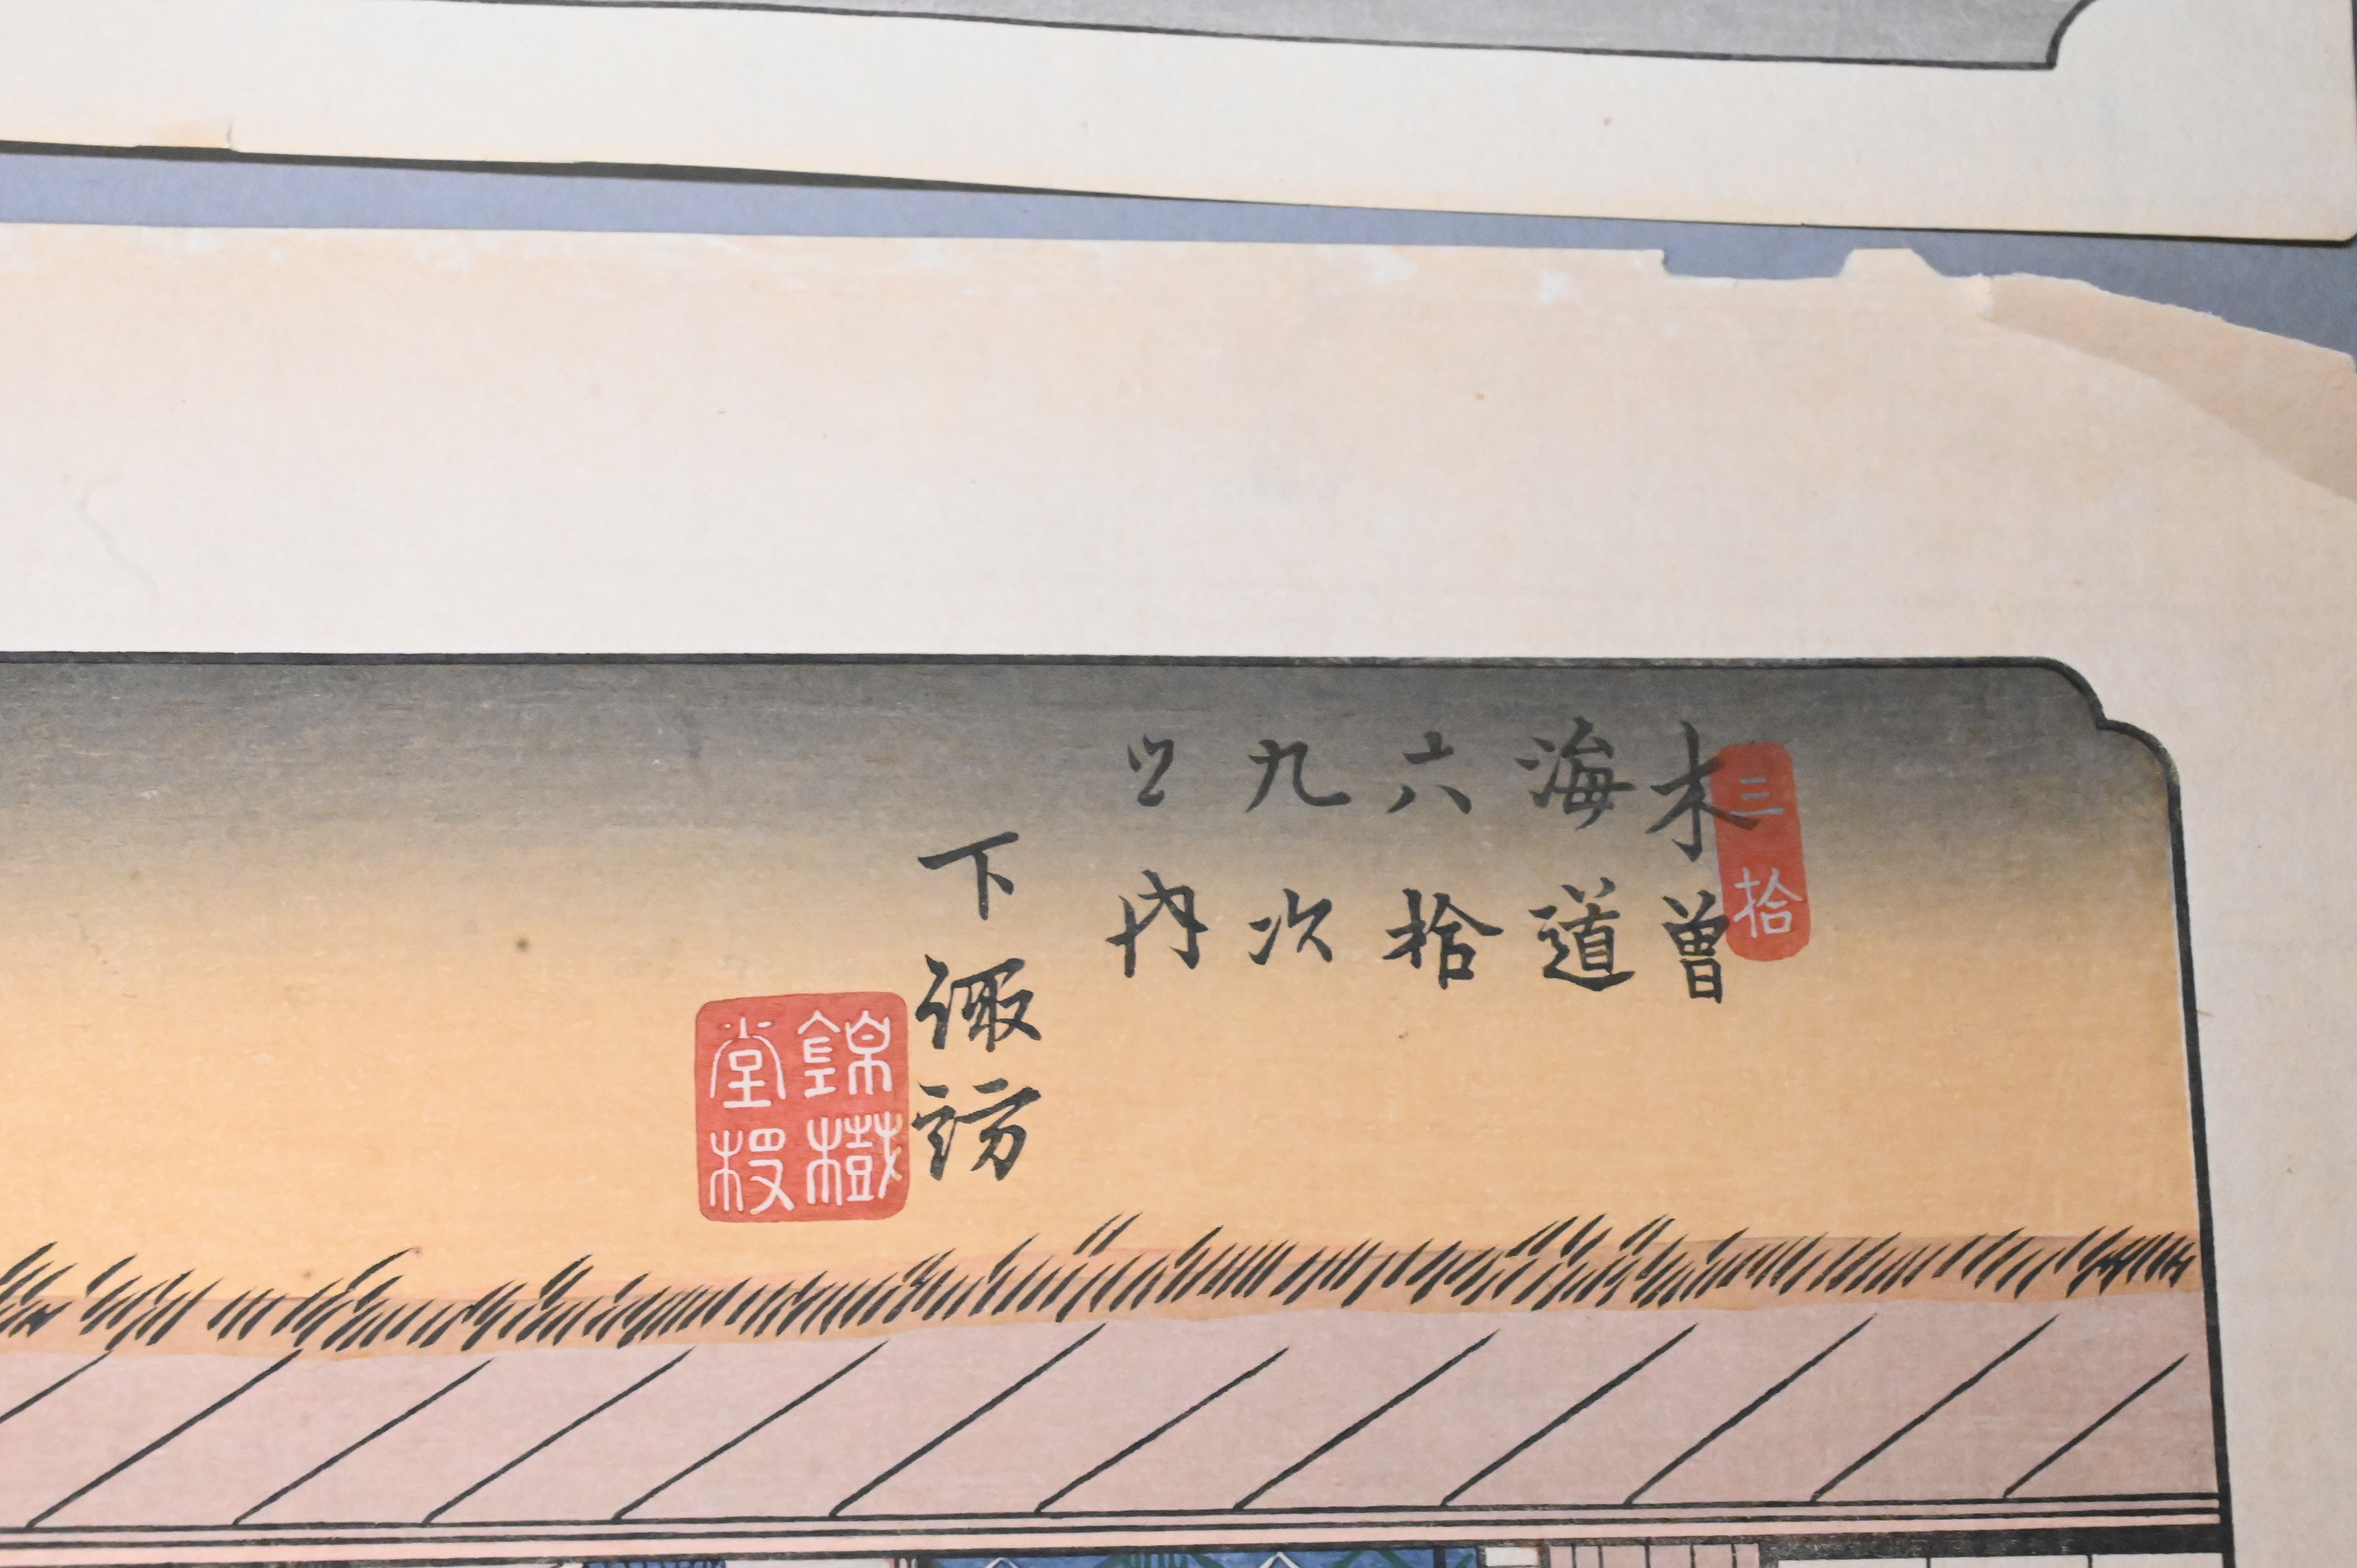 三拾
木曽
海道
六拾
九次
之内
下諏訪
錦樹
堂板